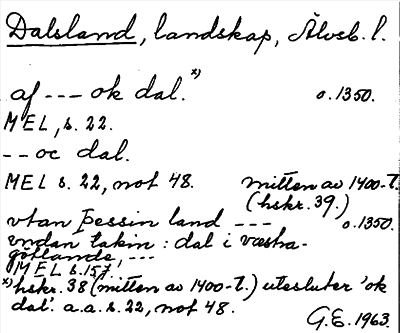 Dalsland, landskap, Älvsb. l.
af --- ok dal.*) o.1350.
MEL, s. 22.
-- oc dal.
MEL s. 22, not 48. mitten av 1400-t.
(hskr. 39.)
vtan þessin land --- o.1350.
vndan takin : dal i væstra-
götlande, ---
MEL s.157.
*) hskr. 38 (mitten av 1400-t.) utesluter 'ok
dal'. a.a. s. 22, not 48.
G.E. 1963.